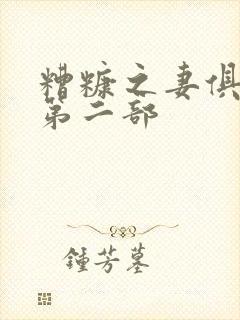 糟糠之妻俱
第二部
鍾芳墓